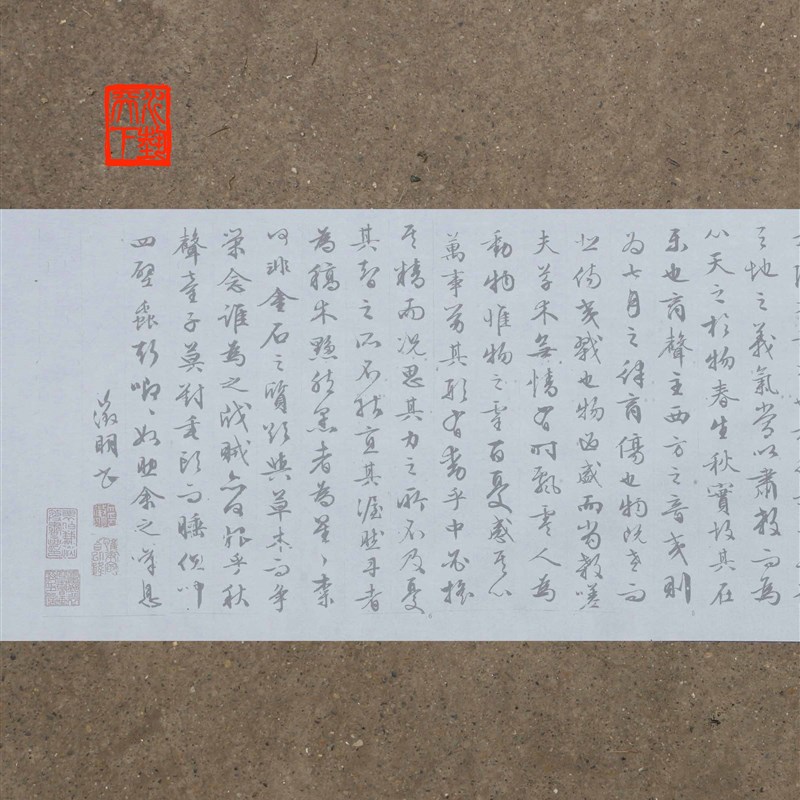 天地之義氣常以肅殺而為
心天之於物春生秋實故其在
樂也商聲主西方之音夷則
為七月之律商傷也物既老而
悲傷夷戮也物過盛而當殺嗟
夫草木無情有時飄零人為
動物惟物之靈百憂感其心
萬事勞其形有動乎中必搖
其精而況思其力之所不及憂
其智之所不能宜其渥然丹者
為槁木黟然黑者為星〻柰
何非金石之質欲與草木而爭
榮念誰為之戕賊亦何恨乎秋
聲童子莫對垂頭而睡但聞
四壁蟲聲唧〻如助余之嘆息
徵明書